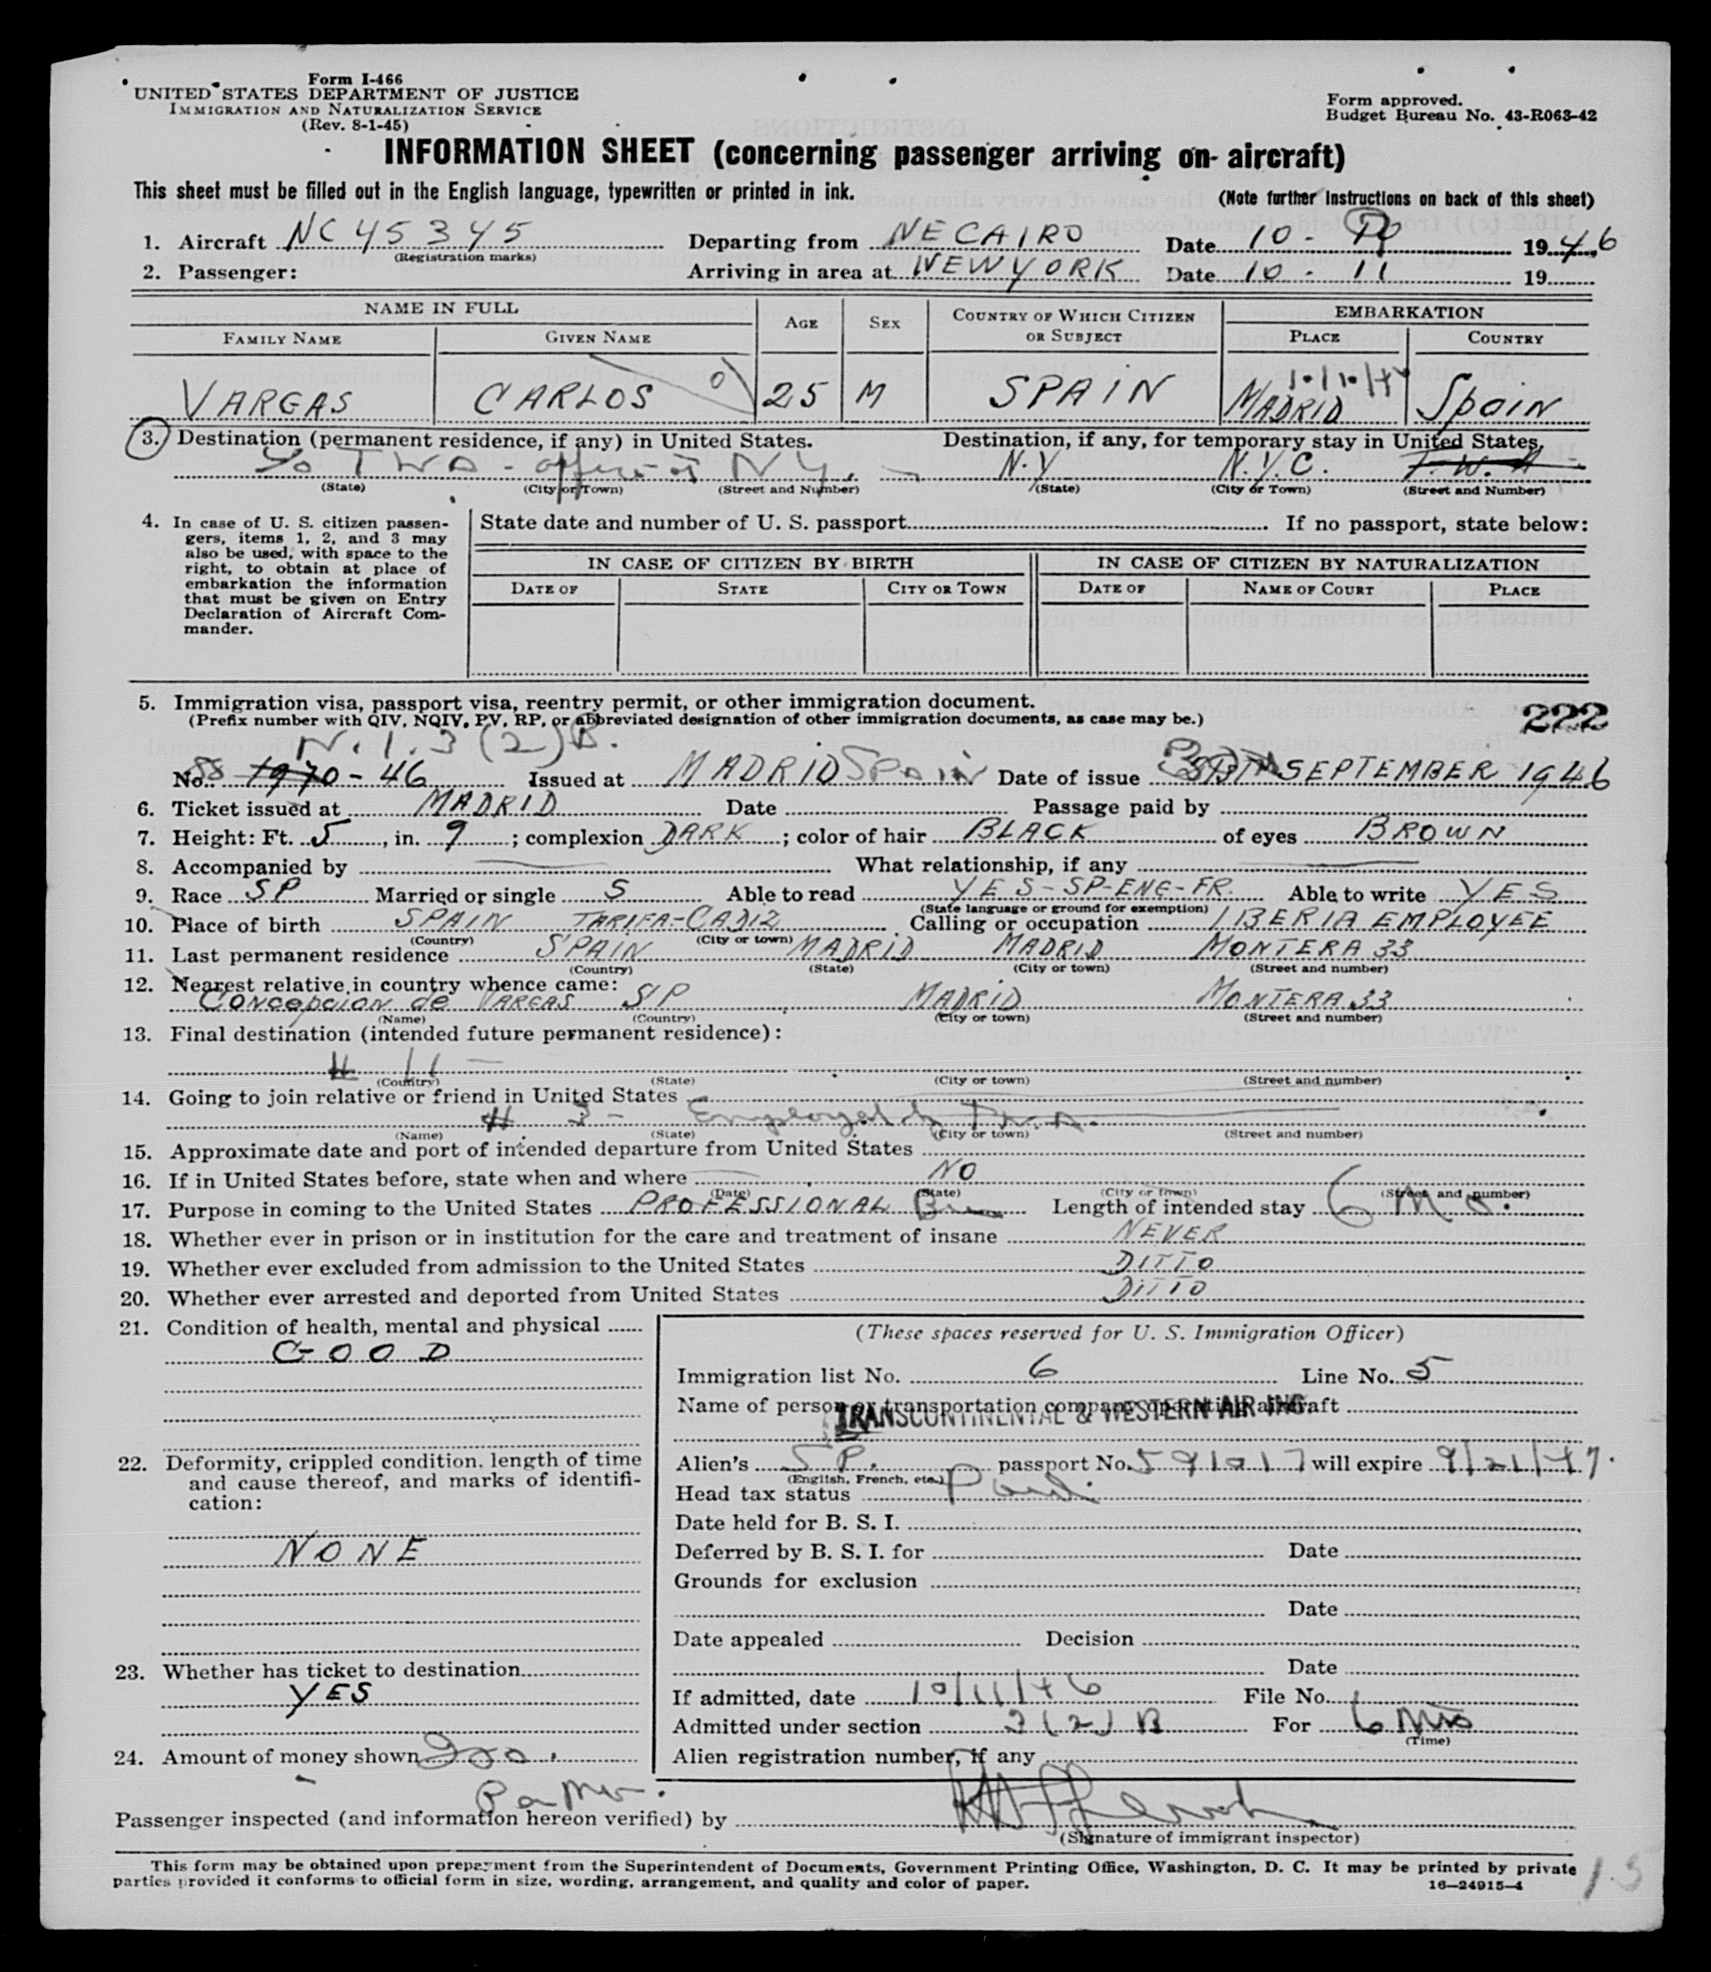 Form I-466
UNITED STATES DEPARTMENT OF JUSTICE
IMMIGRATION AND NATURALIZATION SERVICE
(Rev. 8-1-45)
Form approved.
Budget Bureau No. 43-R063-42
INFORMATION SHEET (concerning passenger arriving on aircraft)
This sheet must be filled out in the English language, typewritten or printed in ink.
(Note further instructions on back of this sheet)
1. Aircraft NC 45345 Departing from NECAIRO Date 10- 1946
(Registration marks)
2. Passenger: Arriving in area at NEW YORK Date 10-11 19
NAME IN FULL AGE SEX COUNTRY OF WHICH CITIZEN OR SUBJECT EMBARKATION
FAMILY NAME GIVEN NAME PLACE COUNTRY
VARGAS CARLOS 25 M SPAIN MADRID Spain
3. Destination (permanent residence, if any) in United States. Destination, if any, for temporary stay in United States.
c/o TWA - office at N.Y. N.Y N.Y.C. T.W.A
(State) (City or Town) (Street and Number) (State) (City or Town) (Street and Number)
4. In case of U. S. citizen passengers, items 1, 2, and 3 may also be used, with space to the right, to obtain at place of embarkation the information that must be given on Entry Declaration of Aircraft Commander.
State date and number of U. S. passport If no passport, state below:
IN CASE OF CITIZEN BY BIRTH IN CASE OF CITIZEN BY NATURALIZATION
DATE OF STATE CITY OR TOWN DATE OF NAME OF COURT PLACE
5. Immigration visa, passport visa, reentry permit, or other immigration document.
(Prefix number with QIV, NQIV, PV, RP, or abbreviated designation of other immigration documents, as case may be.)
222
N.I. 3(2)B.
No. 88 1970-46 Issued at MADRID Spain Date of issue SEPTEMBER 1946
6. Ticket issued at MADRID Date Passage paid by
7. Height: Ft. 5, in. 9; complexion DARK; color of hair BLACK of eyes BROWN
8. Accompanied by What relationship, if any
9. Race SP Married or single S Able to read YES-SP-ENG-FR. Able to write YES
(State language or ground for exemption)
10. Place of birth SPAIN TARIFA-CADIZ Calling or occupation IBERIA EMPLOYEE
(Country) (City or town)
11. Last permanent residence SPAIN MADRID MADRID MONTERA 33
(Country) (State) (City or town) (Street and number)
12. Nearest relative in country whence came:
Concepcion de VARGAS SP MADRID MONTERA 33
(Name) (Country) (City or town) (Street and number)
13. Final destination (intended future permanent residence):
# 11
(Country) (State) (City or town) (Street and number)
14. Going to join relative or friend in United States
# 3 - Employed by T.W.A.
(Name) (State) (City or town) (Street and number)
15. Approximate date and port of intended departure from United States
16. If in United States before, state when and where NO
(Date) (State) (City or town) (Street and number)
17. Purpose in coming to the United States PROFESSIONAL Length of intended stay 6 Mo.
18. Whether ever in prison or in institution for the care and treatment of insane NEVER
19. Whether ever excluded from admission to the United States DITTO
20. Whether ever arrested and deported from United States DITTO
21. Condition of health, mental and physical
GOOD
22. Deformity, crippled condition, length of time and cause thereof, and marks of identification:
NONE
23. Whether has ticket to destination
YES
24. Amount of money shown 200.
(These spaces reserved for U. S. Immigration Officer)
Immigration list No. 6 Line No. 5
Name of person or transportation company operating aircraft
TRANSCONTINENTAL & WESTERN AIR INC.
Alien's SP. passport No. 591017 will expire 9/21/47.
(English, French, etc.)
Head tax status Paid
Date held for B. S. I.
Deferred by B. S. I. for Date
Grounds for exclusion
Date
Date appealed Decision
Date
If admitted, date 10/11/46 File No.
Admitted under section 3(2)B For 6 Mos
(Time)
Alien registration number, if any
Passenger inspected (and information hereon verified) by
(Signature of immigrant inspector)
This form may be obtained upon prepayment from the Superintendent of Documents, Government Printing Office, Washington, D. C. It may be printed by private
parties provided it conforms to official form in size, wording, arrangement, and quality and color of paper.
16—24915-4
15